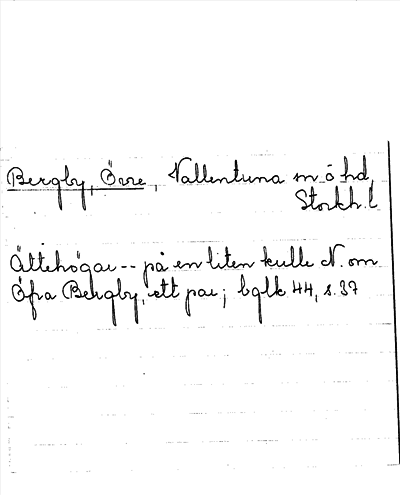 Bergby, Övre, Vallentuna sn o hd,
Storkh. l
Ättehögar -- på en liten kulle N. om
Öfra Bergby, ett par; bglk 44, s. 37